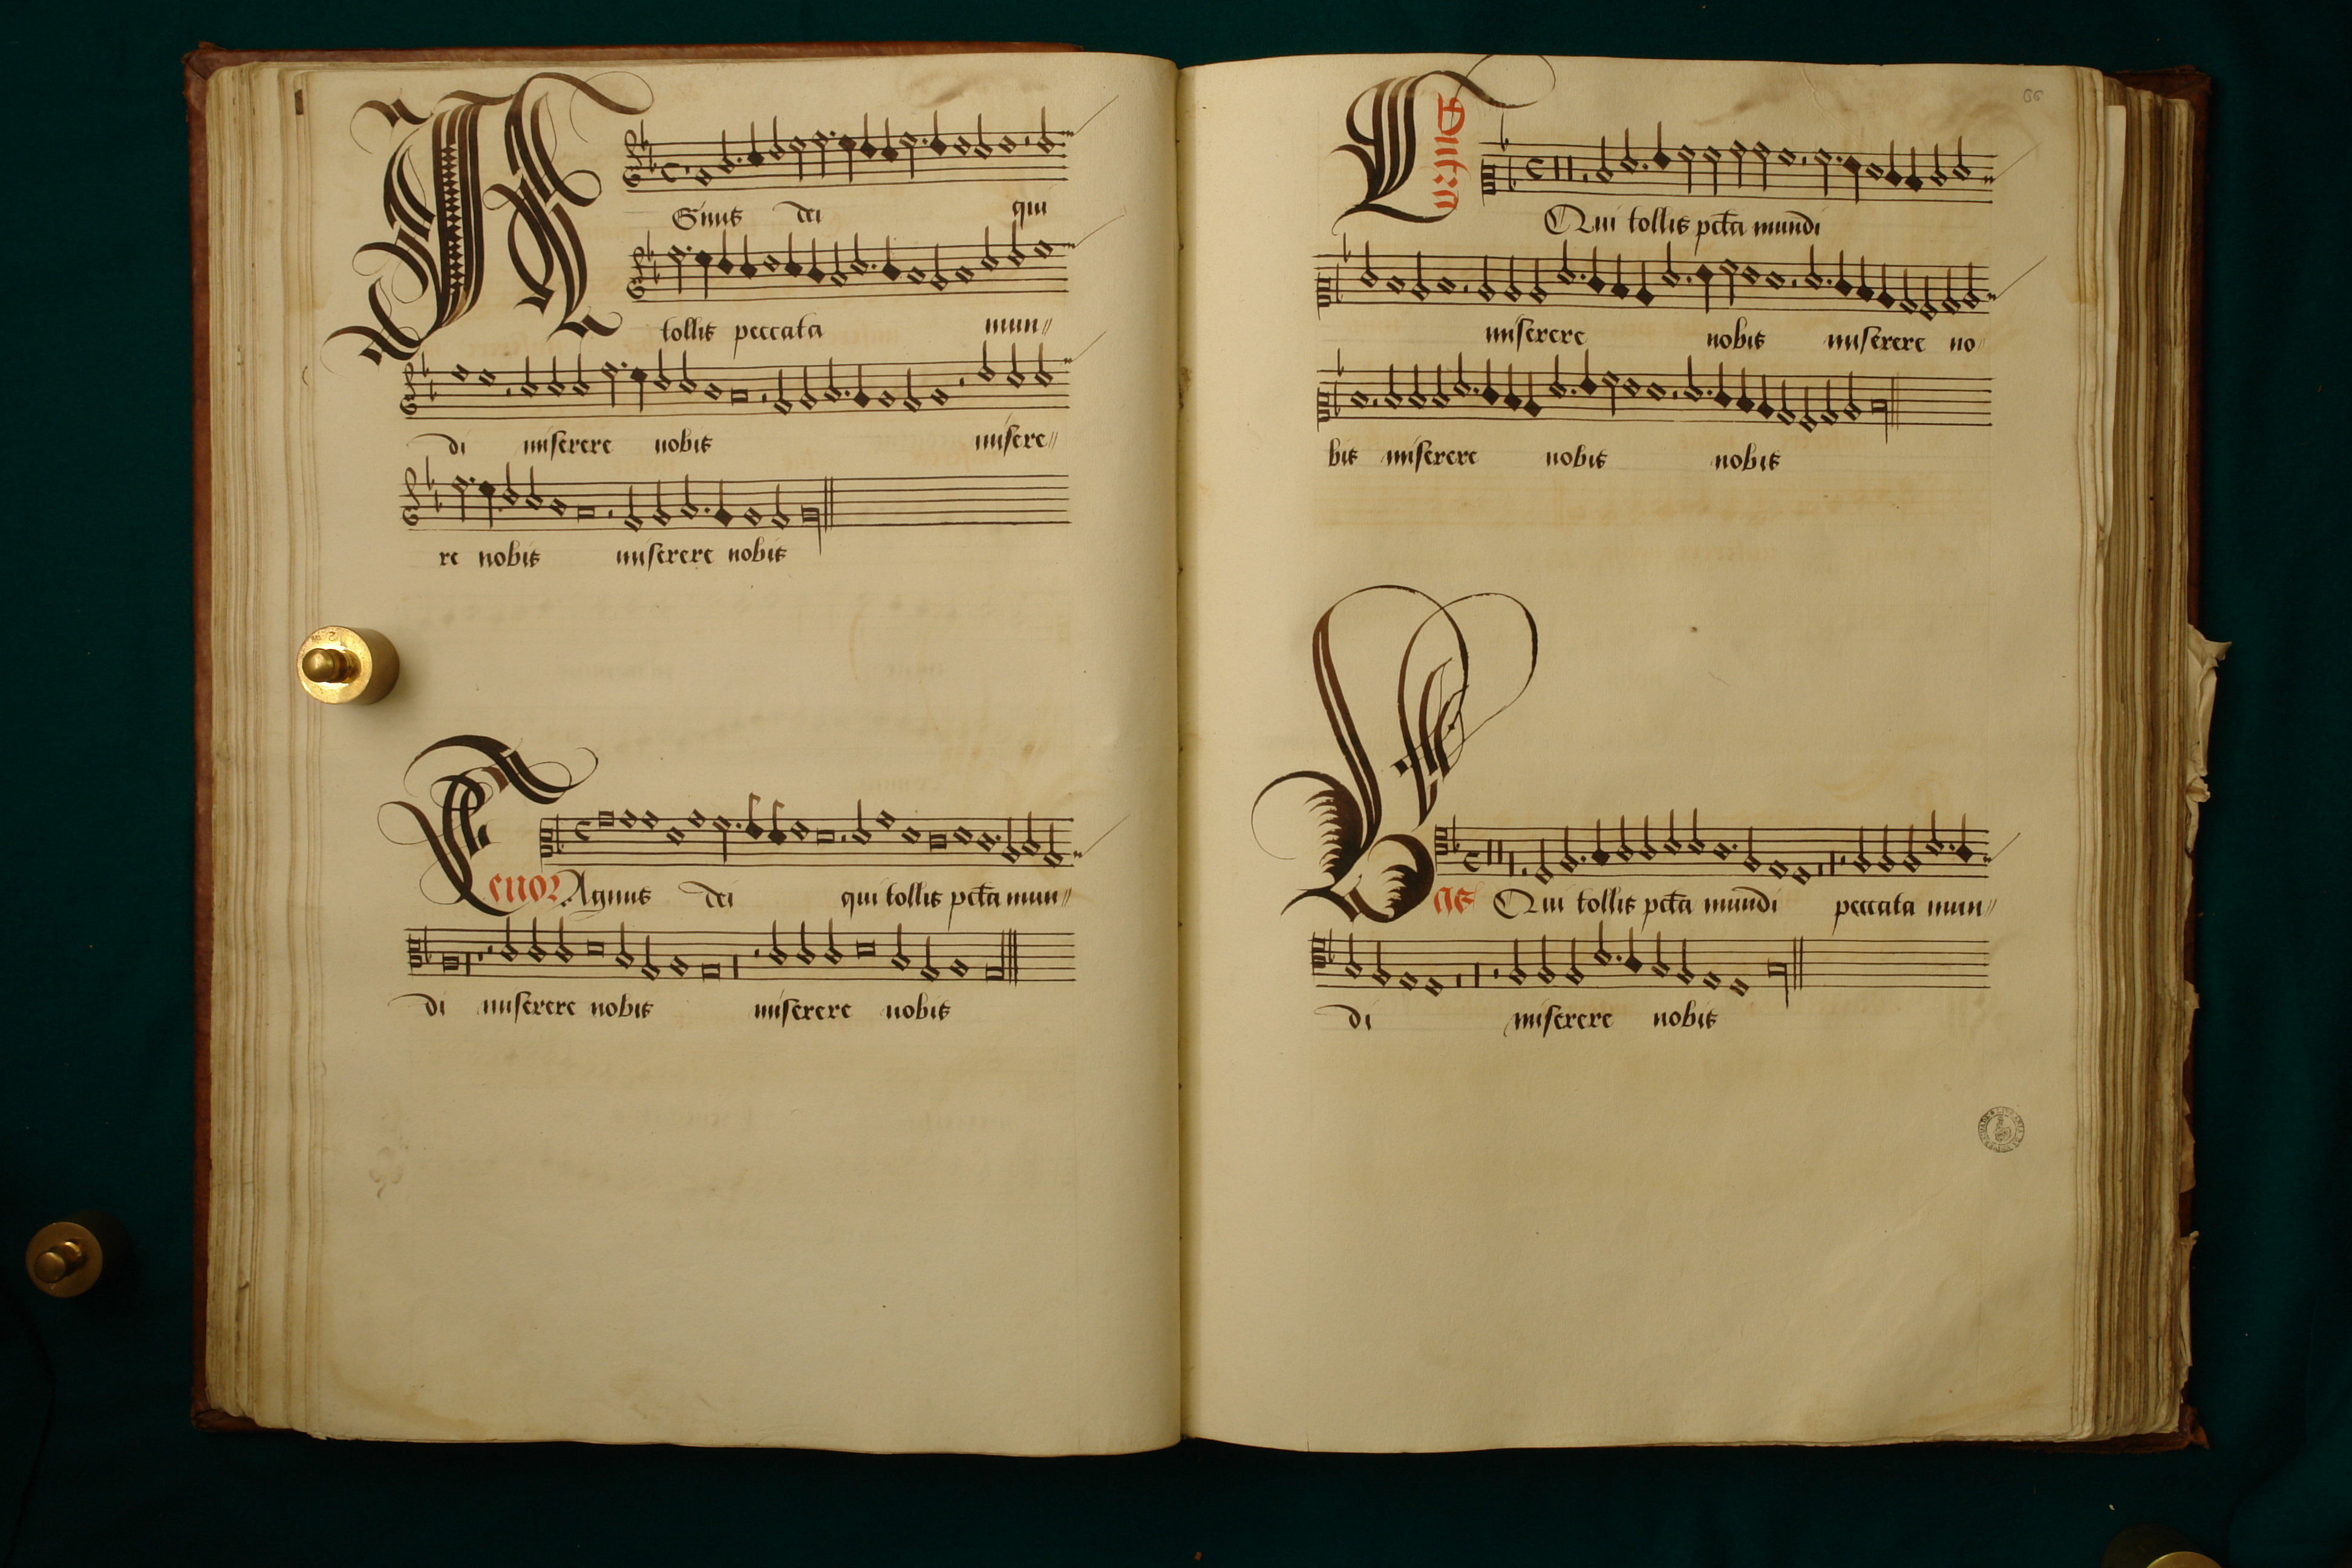 Agnus dei qui
tollis peccata mun//
di miserere nobis misere//
re nobis miserere nobis
Tenor Agnus dei qui tollis pcta mun//
di miserere nobis miserere nobis
66
Contra
Qui tollis pcta mundi
miserere nobis miserere no//
bis miserere nobis nobis
Bas Qui tollis pcta mundi peccata mun//
di miserere nobis